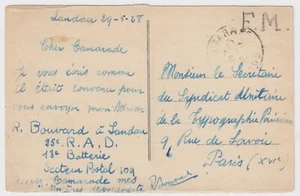 Landau 29-5-28
Cher Camarade
Je vous écris comme
il était convenu pour
vous envoyer mon
R. Bouvard à Landau
35e R.A.D.
18e Batterie
Secteur Postal 109
Camarade mes
F.M.
Monsieur le Secrétaire
du Syndicat Unitaire
de la Typographie Parisienne
9 Rue de Savoie
Paris (XVIe)